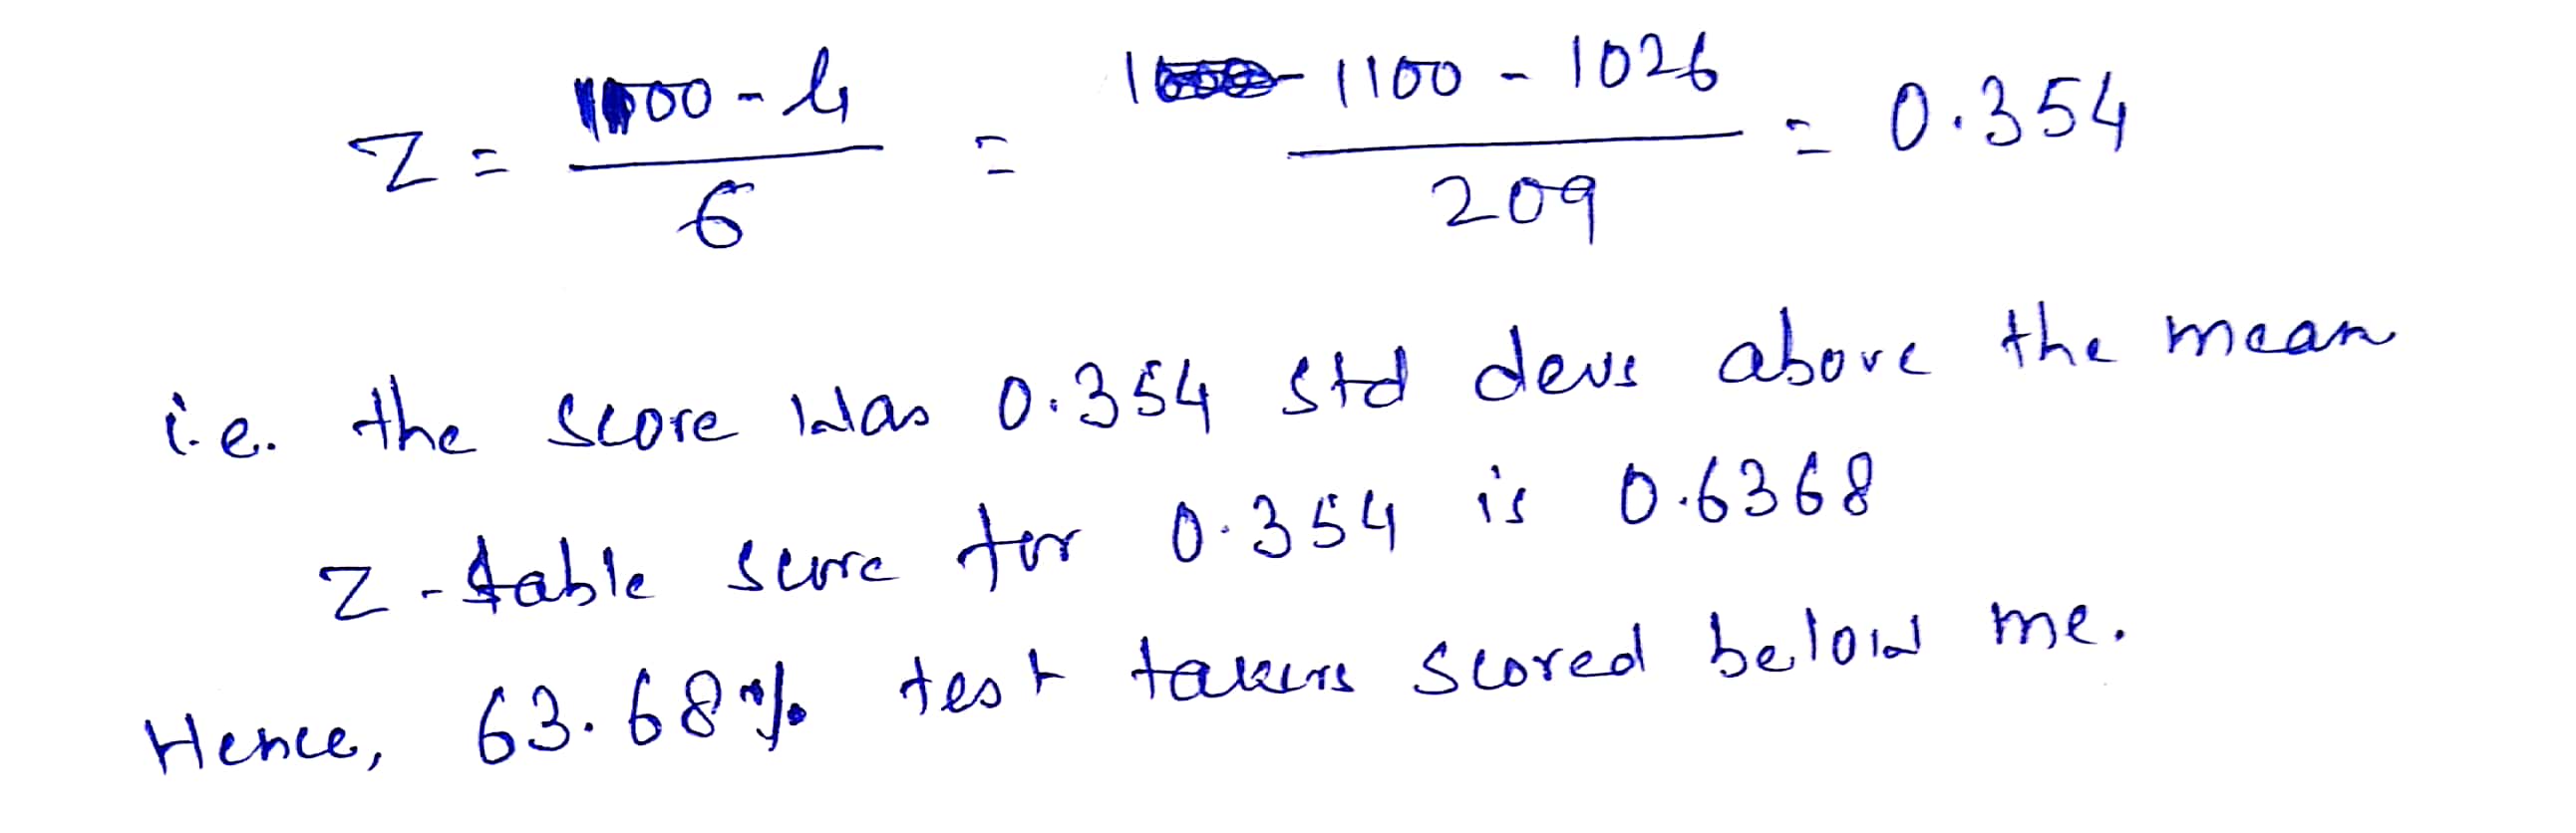 Z = 1100 - μ / σ = 1100 - 1026 / 209 = 0.354
i.e. the score was 0.354 std devs above the mean
Z-table score for 0.354 is 0.6368
Hence, 63.68% test takers scored below me.